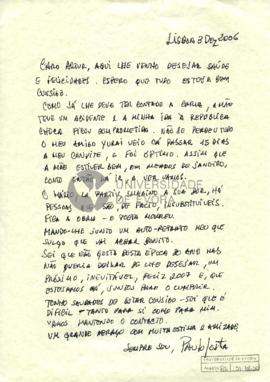 LISBOA 3 DEZ 2006
CARO ARTUR, AQUI LHE VENHO DESEJAR SAÚDE
E FELICIDADES. ESPERO QUE TUDO ESTEJA BEM
CONSIGO.
COMO JÁ LHE DEVE TER CONTADO A CARLA, A MÃE
TEVE UM ACIDENTE E A MINHA IDA À REPÚBLICA
CHECA FICOU COMPROMETIDA. NÃO SE PERDEU TUDO
O MEU AMIGO VEIO CÁ PASSAR 15 DIAS
A MEU CONVITE, E FOI ÓPTIMO. ASSIM QUE
A MÃE ESTIVER BEM, EM MEADOS DE JANEIRO,
CONTO IR A VER VÁRIOS
O MÁRIO LÁ PARTIU, SABEMOS A SUA DOR, HÁ
PESSOAS DE FACTO, INSUBSTITUÍVEIS.
FICA A OBRA - O POETA MORREU.
MANDO-LHE JUNTO UM AUTO-RETRATO MEU QUE
JULGO QUE VAI ACHAR BONITO.
SEI QUE NÃO GOSTA DESTA ÉPOCA DO ANO MAS
NÃO QUERIA DEIXAR DE LHE DESEJAR, UM
PRÓXIMO, INEVITÁVEL, FELIZ 2007 E, QUE
ESTEJAMOS JUNTOS PARA O CUMPRIR.
TENHO SAUDADES DE ESTAR CONSIGO - SEI QUE É
DIFÍCIL - TANTO PARA SI COMO PARA MIM.
VAMOS MANTENDO O CONTACTO.
UM GRANDE ABRAÇO COM MUITA ESTIMA E AMIZADE,
SEMPRE SEU, Paulo Costa
UNIVERSIDADE
DE ÉVORA